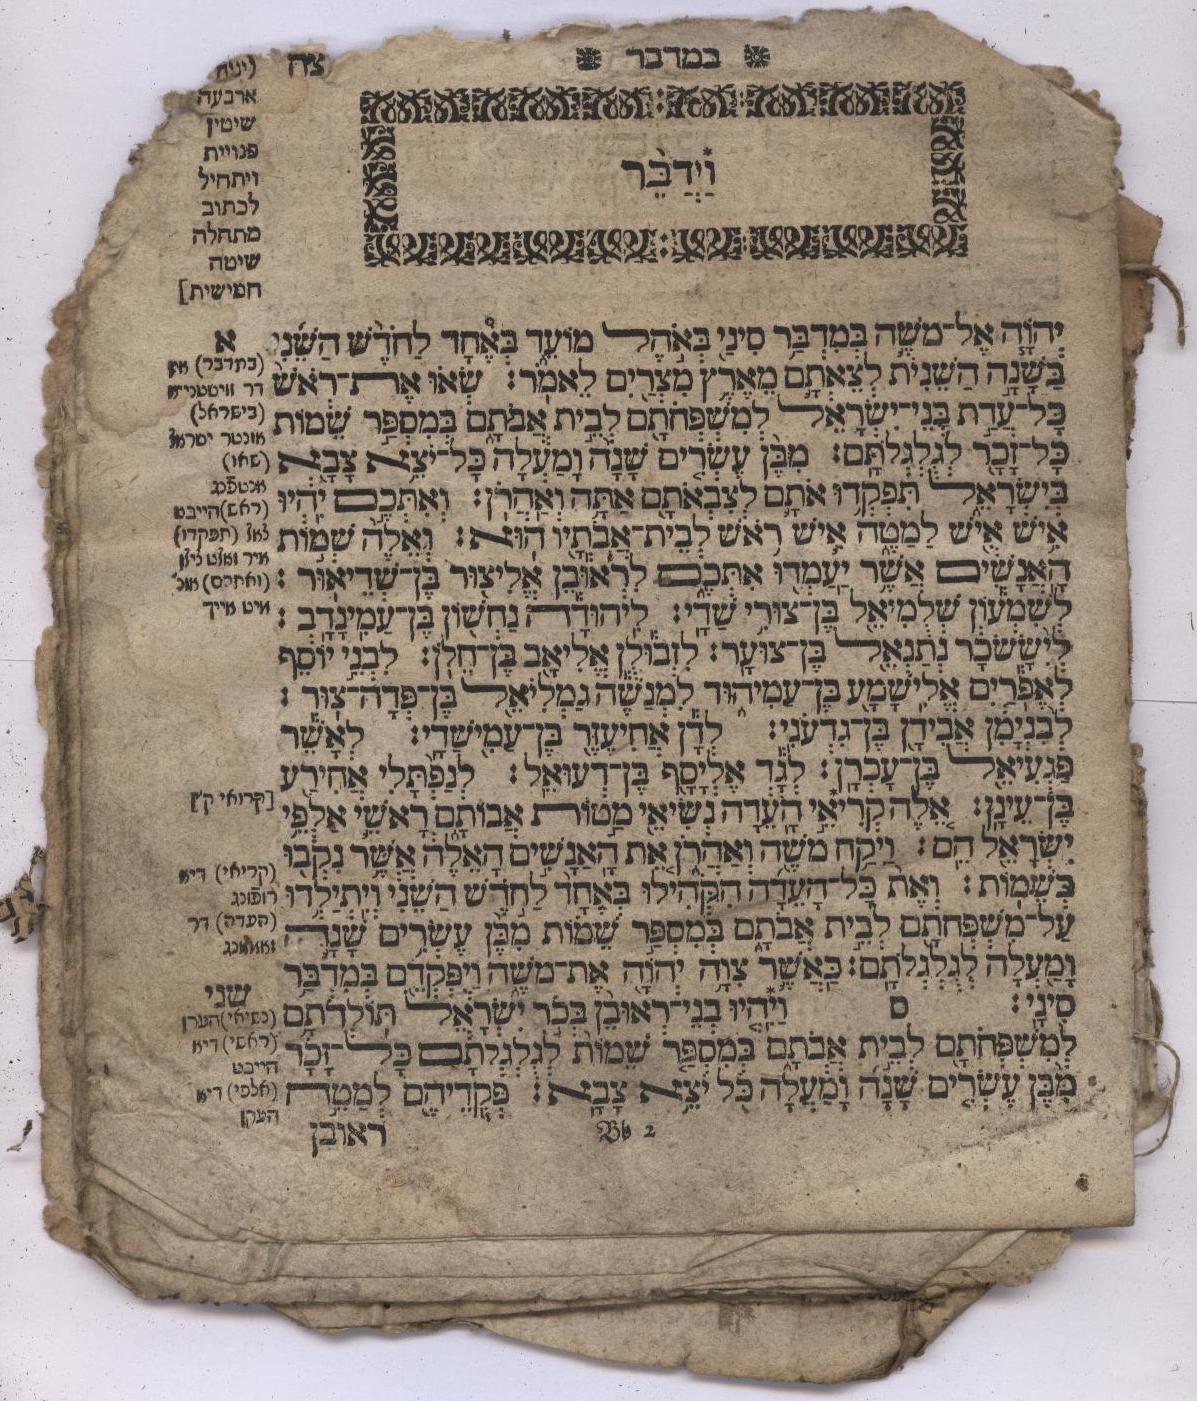 במדבר
צה
(יניח
ארבעה
שיטין
פנויית
ויתחיל
לכתוב
מתחלה
שיטה
חמישית]
וַיְדַבֵּר
יְהוָֹה אֶל־מֹשֶׁה בְּמִדְבַּר סִינַי בְּאֹהֶל מוֹעֵד בְּאֶחָד לַחֹדֶשׁ הַשֵּׁנִי
בַּשָּׁנָה הַשֵּׁנִית לְצֵאתָם מֵאֶרֶץ מִצְרַיִם לֵאמֹר׃ שְׂאוּ אֶת־רֹאשׁ
כָּל־עֲדַת בְּנֵי־יִשְׂרָאֵל לְמִשְׁפְּחֹתָם לְבֵית אֲבֹתָם בְּמִסְפַּר שֵׁמוֹת
כָּל־זָכָר לְגֻלְגְּלֹתָם׃ מִבֶּן עֶשְׂרִים שָׁנָה וָמַעְלָה כָּל־יֹצֵא צָבָא
בְּיִשְׂרָאֵל תִּפְקְדוּ אֹתָם לְצִבְאֹתָם אַתָּה וְאַהֲרֹן׃ וְאִתְּכֶם יִהְיוּ
אִישׁ אִישׁ לַמַּטֶּה אִישׁ רֹאשׁ לְבֵית־אֲבֹתָיו הוּא׃ וְאֵלֶּה שְׁמוֹת
הָאֲנָשִׁים אֲשֶׁר יַעַמְדוּ אִתְּכֶם לִרְאוּבֵן אֱלִיצוּר בֶּן־שְׁדֵיאוּר׃
לְשִׁמְעוֹן שְׁלֻמִיאֵל בֶּן־צוּרִי שַׁדָּי׃ לִיהוּדָה נַחְשׁוֹן בֶּן־עַמִּינָדָב׃
לְיִשָּׂשכָר נְתַנְאֵל בֶּן־צוּעָר׃ לִזְבוּלֻן אֱלִיאָב בֶּן־חֵלֹן׃ לִבְנֵי יוֹסֵף
לְאֶפְרַיִם אֱלִישָׁמָע בֶּן־עַמִּיהוּד לִמְנַשֶּׁה גַּמְלִיאֵל בֶּן־פְּדָה־צוּר׃
לְבִנְיָמִן אֲבִידָן בֶּן־גִּדְעֹנִי׃ לְדָן אֲחִיעֶזֶר בֶּן־עַמִּישַׁדָּי׃ לְאָשֵׁר
פַּגְעִיאֵל בֶּן־עָכְרָן׃ לְגָד אֶלְיָסָף בֶּן־דְּעוּאֵל׃ לְנַפְתָּלִי אֲחִירַע
בֶּן־עֵינָן׃ אֵלֶּה קְרִיאֵי הָעֵדָה נְשִׂיאֵי מַטּוֹת אֲבוֹתָם רָאשֵׁי אַלְפֵי
יִשְׂרָאֵל הֵם׃ וַיִּקַּח מֹשֶׁה וְאַהֲרֹן אֵת הָאֲנָשִׁים הָאֵלֶּה אֲשֶׁר נִקְּבוּ
בְּשֵׁמוֹת׃ וְאֵת כָּל־הָעֵדָה הִקְהִילוּ בְּאֶחָד לַחֹדֶשׁ הַשֵּׁנִי וַיִּתְיַלְדוּ
עַל־מִשְׁפְּחֹתָם לְבֵית אֲבֹתָם בְּמִסְפַּר שֵׁמוֹת מִבֶּן עֶשְׂרִים שָׁנָה
וָמַעְלָה לְגֻלְגְּלֹתָם׃ כַּאֲשֶׁר צִוָּה יְהוָֹה אֶת־מֹשֶׁה וַיִּפְקְדֵם בְּמִדְבַּר
סִינָי׃ ס וַיִּהְיוּ בְנֵי־רְאוּבֵן בְּכֹר יִשְׂרָאֵל תּוֹלְדֹתָם
לְמִשְׁפְּחֹתָם לְבֵית אֲבֹתָם בְּמִסְפַּר שֵׁמוֹת לְגֻלְגְּלֹתָם כָּל־זָכָר
מִבֶּן עֶשְׂרִים שָׁנָה וָמַעְלָה כֹּל יֹצֵא צָבָא׃ פְּקֻדֵיהֶם לְמַטֵּה
ראובן
Bb 2
א
(במדבר) אין
דר וויסטניא
(בישראל)
אונטר יסראל
(שאו)
(ראש) הייבט
(תפקדו)
(ואתכם) אונ'
מיט אייך
[קרואי ק']
(קריאי) דיא
רופונג
(העדה) דר
זאמונג
שני
(נשיאי) הערן
(ראשי) דיא
הייבט
(אלפי) דיא
הערן